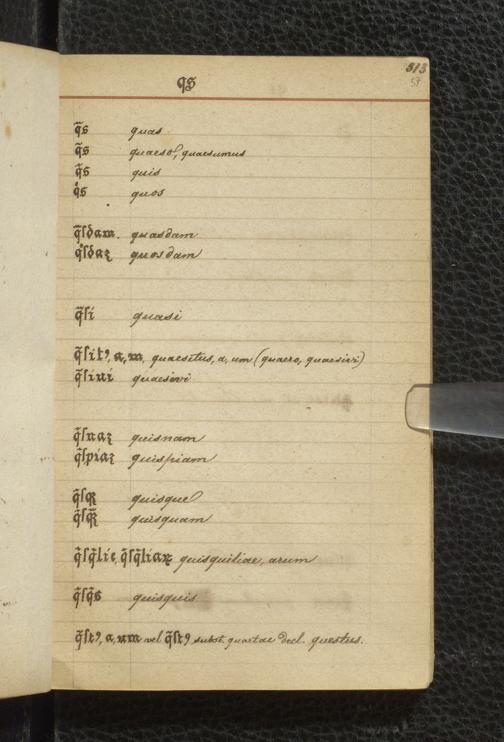 313
59
qs
q̄s quas
q̄s quaeso, quaesumus
q̄s quis
q̊s quos
q̄sdam. quasdam
q̊sdaꝫ quosdam
q̄ſi quasi
q̄ſitꝰ, a, m, quaesitus, a, um (quaero, quaesivi)
q̄ſiui quaesivi
q̄ſnaꝫ quisnam
q̄ſpiaꝫ quispiam
q̄ſqꝫ quisque
q̄ſq̄ꝫ quisquam
q̄ſq̄lie, q̄ſq̄liaꝝ quisquiliae, arum
q̄ſq̄s quisquis
q̄ſtꝰ, a, um vel q̄ſtꝰ subst. quartae decl. questus.